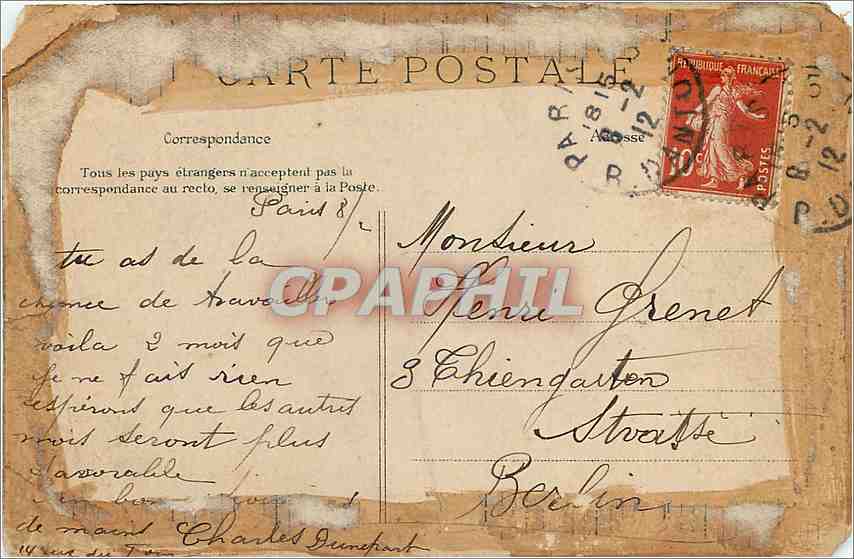 CARTE POSTALE
Correspondance
Adresse
Tous les pays étrangers n'acceptent pas la
correspondance au recto, se renseigner à la Poste.
REPUBLIQUE FRANÇAISE
10c
POSTES
PARIS
1815
8-2
12
R. DANTON
8-2
12
Paris 8/2
tu as de la
chance de travailler
voila 2 mois que
je ne fais rien
espérons que les autres
mois seront plus
favorable
un bon
de mains Charles
14 rue du
Monsieur
Henri Grenet
3 Thiengarten
Stratsse
Berlin
CPAPHIL